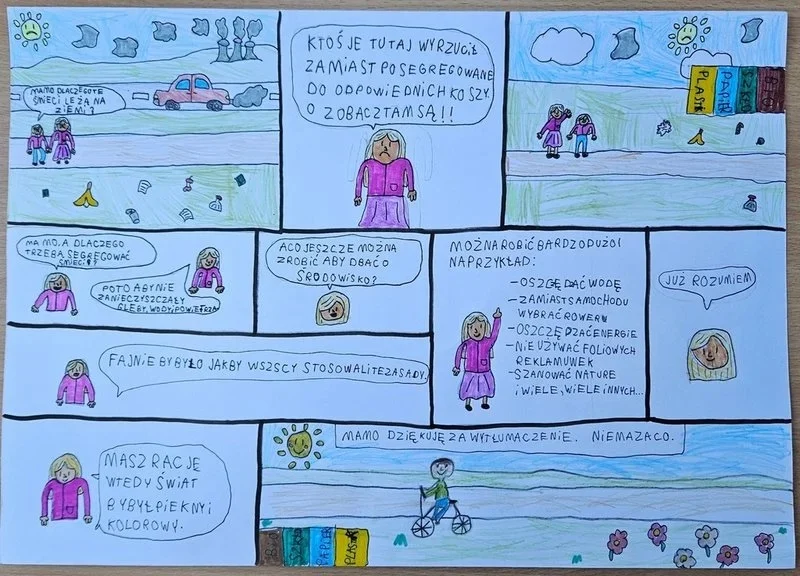 MAMO DLACZEGO TE
ŚMIECI LEŻĄ NA
ZIEMI?
KTOŚ JE TUTAJ WYRZUCIŁ
ZAMIAST POSEGREGOWANE
DO ODPOWIEDNICH KOSZY.
O ZOBACZ TAM SĄ!!
PLASTIK
PAPIER
SZKŁO
BIO
MAMO, A DLACZEGO
TRZEBA SEGREGOWAĆ
ŚMIECI?
PO TO ABY NIE
ZANIECZYSZCZAŁY
GLEBY, WODY I POWIETRZA
A CO JESZCZE MOŻNA
ZROBIĆ ABY DBAĆ O
ŚRODOWISKO?
MOŻNA ROBIĆ BARDZO DUŻO!
NA PRZYKŁAD:
- OSZCĘDAĆ WODĘ
- ZAMIAST SAMOCHODU
WYBRAĆ ROWERU
- OSZCĘDZAĆ ENERGIE
- NIE UŻYWAĆ FOLIOWYCH
REKLAMUWEK
- SZANOWAĆ NATURE
I WIELE, WIELE INNYCH...
JUŻ ROZUMIEM
FAJNIE BY BYŁO JAKBY WSZSCY STOSOWALI TE ZASADY.
MASZ RACJĘ
WTEDY ŚWIAT
BY BYŁ PIEKNY I
KOLOROWY.
MAMO DZIĘKUJĘ ZA WYTŁUMACZENIE. NIEMA ZA CO.
BIO
SZKŁO
PAPIER
PLASTIK